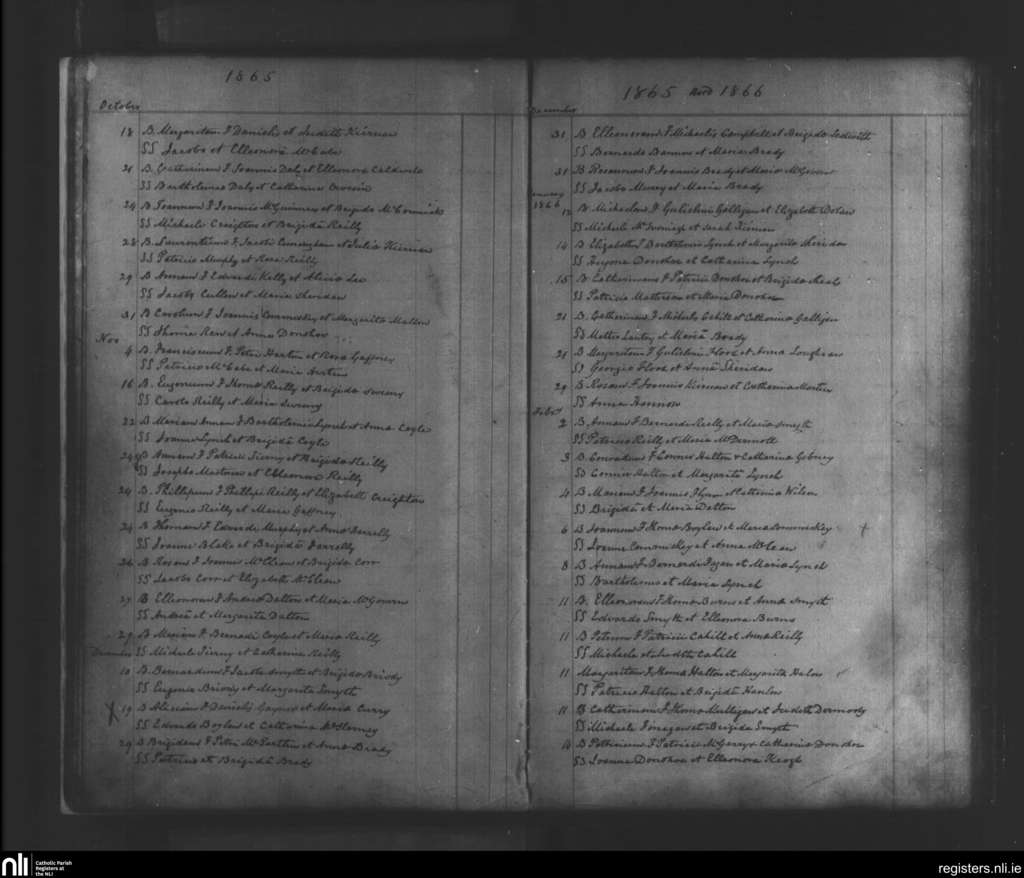 1865
October
18 B. Margaritam F Danielis et Judith Kiernan
SS Jacobo et Elleonora McCabe
21 B. Catherinam F Joannis Daly et Elleonora Caldwell
SS Bartholomeo Daly et Catharina
24 B. Joannem F Joannis McGuinness et Brigida McCormick
SS Michaele Creighton et Brigida Reilly
28 B. Laurentium F. Jacobi Cunningham et Julia Kiernan
SS Patricio Murphy et Rosa Reilly
29 B Annam F Edwardi Kelly et Alicia Lee
SS Jacobo Cullen et Maria Sheridan
31 B Carolum F Joannis et Margarita
SS Thoma et Anna Donohoe
Nov
4 B. Franciscum F. Peter Harten et Rosa Gaffney
SS Patricio McCabe et Maria
16 B. Eugenium F Thoma Reilly et Brigida Sweeny
SS Carolo Reilly et Maria Sweeny
22 B Mariam Annam F Bartholomei Lynch et Anna Coyle
SS Joanne Lynch et Brigidâ Coyle
24 B Annam F Patricii Tierny et Brigida Reilly
SS Josepho et Elleonora Reilly
24 B. Phillipum F Phillipi Reilly et Elizabeth Creighton
SS Eugenio Reilly et Maria Gaffney
24 B Thomam F Edwardi Murphy et Anna Farrelly
SS Joanne Blake et Brigidâ Farrelly
26 B Rosam F Joannis McClean et Brigida Corr
SS Jacobo Corr et Elizabeth McClean
27 B Elleonoram F Andrea Dalton et Maria McGovern
SS Andrea et Margarita Dalton
29 B Mariam F Bernardi Coyle et Maria Reilly
SS Michaele Tierny et Catharina Reilly
December
10 B. Bernardum F Jacobi Smyth et Brigida Briody
SS Eugenio Briody et Margarita Smyth
X 19 B Aliciam F Danielis Gaynor et Maria Curry
SS Edwardo Boylan et Catherina
29 B Brigidam F Peter McPartlin et Anna Brady
SS Patricio et Brigidâ Brady
1865 and 1866
December
31 B Elleonoram F Michaelis Campbell et Brigida
SS Bernardo Bannon et Maria Brady
31 B Rosannam F Joannis Brady et Maria McGovern
SS Jacobo Murray et Maria Brady
January
1866
12 B. Michaelem F Gulielmi Galligan et Elizabeth Dolan
SS Michaele et Sarah Kiernan
14 B Elizabeth F Bartholomei Lynch et Margarita Sheridan
SS Hugone Donohoe et Catharina Lynch
15 B Catherinam F Patricii Donohoe et Brigida
SS Patricio et Maria Donohoe
21 B. Catherinam F Michaelis Cahill et Catharina Galligan
SS et Maria Brady
21 B Margaritam F Gulielmi Flood et Anna
SS Georgio Flood et Anna Sheridan
29 B Rosam F Joannis Kiernan et Catharina Martin
SS Anna Hannon
Febry
2 B. Annam F Bernardi Reilly et Maria Smyth
SS Patricio Reilly et Maria McDermott
3 B Conradum F Connor Halton & Catharina
SS Connor Halton et Margarita Lynch
4 B Mariam F Joannis Flynn et Catherina Wilson
SS Brigidâ et Maria Dalton
6 B Joannem F Thoma Boylan et Maria +
SS Joanne et Anna McCann
8 B Annam F Bernardi Fagan et Maria Lynch
SS Bartholomeo et Maria Lynch
11 B. Elleonoram F Thoma Burns et Anna Smyth
SS Edwardo Smyth et Elleonora Burns
11 B Petrum F Patricii Cahill et Anna Reilly
SS Michaele et Judith Cahill
11 Margaritam F Thoma Halton et Margarita
SS Patricio Halton et Brigidâ Hanlon
11 B Catherinam F Thoma Mulligan et Judith Dermody
SS Michaele et Brigida Smyth
B Patricium F Patricii McGarry & Catharina Donohoe
SS Joanne Donohoe et Elleonora Keogh
nli
Catholic Parish
Registers at
the NLI
registers.nli.ie